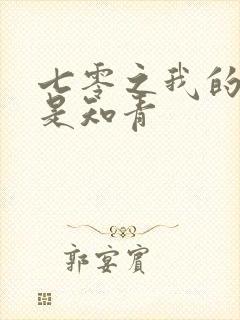 七零之我的
是知青
郭宴宾